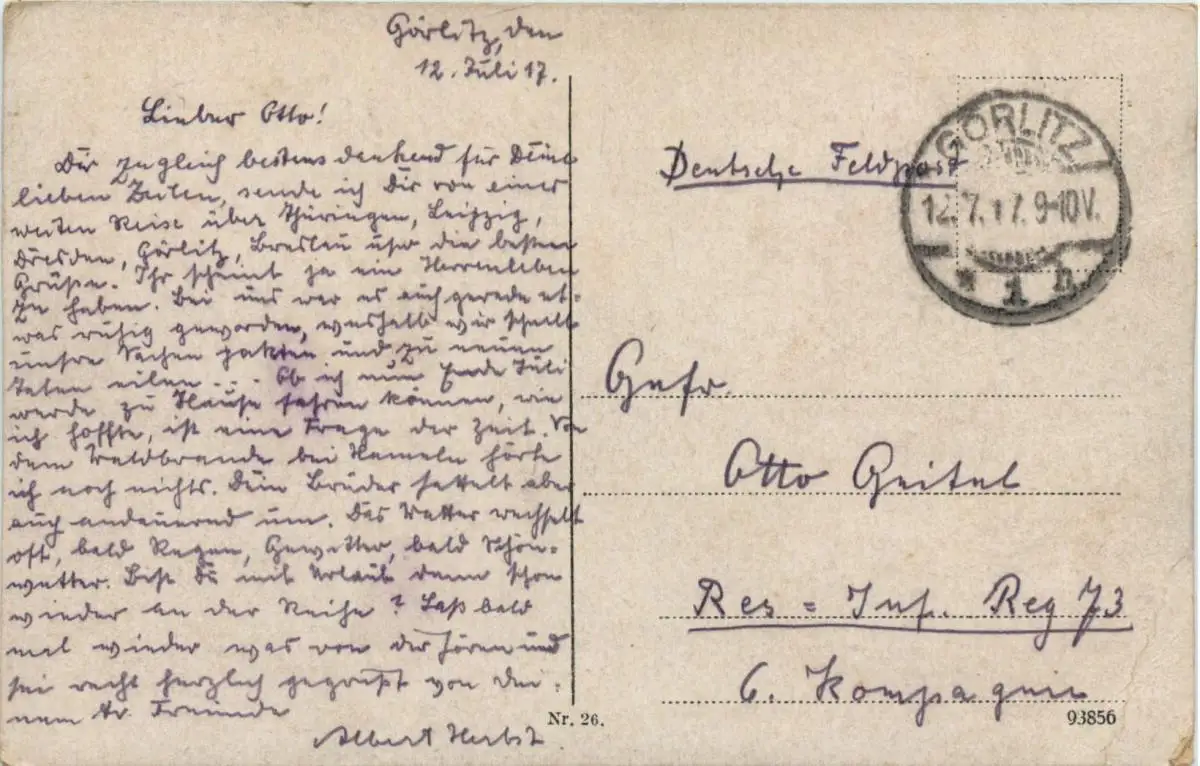 Görlitz, den
12. Juli 17.
Lieber Otto!
Dir zugleich bestens dankend für Deine
lieben Zeilen, sende ich Dir von einer
weiten Reise über Thüringen, Leipzig,
Dresden, Görlitz, Breslau usw die besten
Grüße. Ihr scheint ja ein Herrenleben
zu haben. Bei uns war es auch gerade et-
was ruhig geworden, weshalb wir schnell
unsre Sachen pakten und zu neuen
Taten eilen... Ob ich nun Ende Juli
werde zu Hause fahren können, wie
ich hoffte, ist eine Frage der Zeit. Von
dem Waldbrande bei Hameln hörte
ich noch nichts. Dein Bruder sattelt aber
auch andauernd um. Das Wetter wechselt
oft, bald Regen, Gewitter, bald Schön-
wetter. Bist Du mit Urlaub denn schon
wieder an der Reihe? Laß bald
mal wieder was von dir hören und
sei recht herzlich gegrüßt von Dei-
nem tr. Freunde
Albert Herbst
Deutsche Feldpost
GÖRLITZ
12.7.17.9-10V.
* 1 h
Gefr.
Otto Geitel
Res = Inf. Reg 73
6. Kompagnie
Nr. 26.
93856